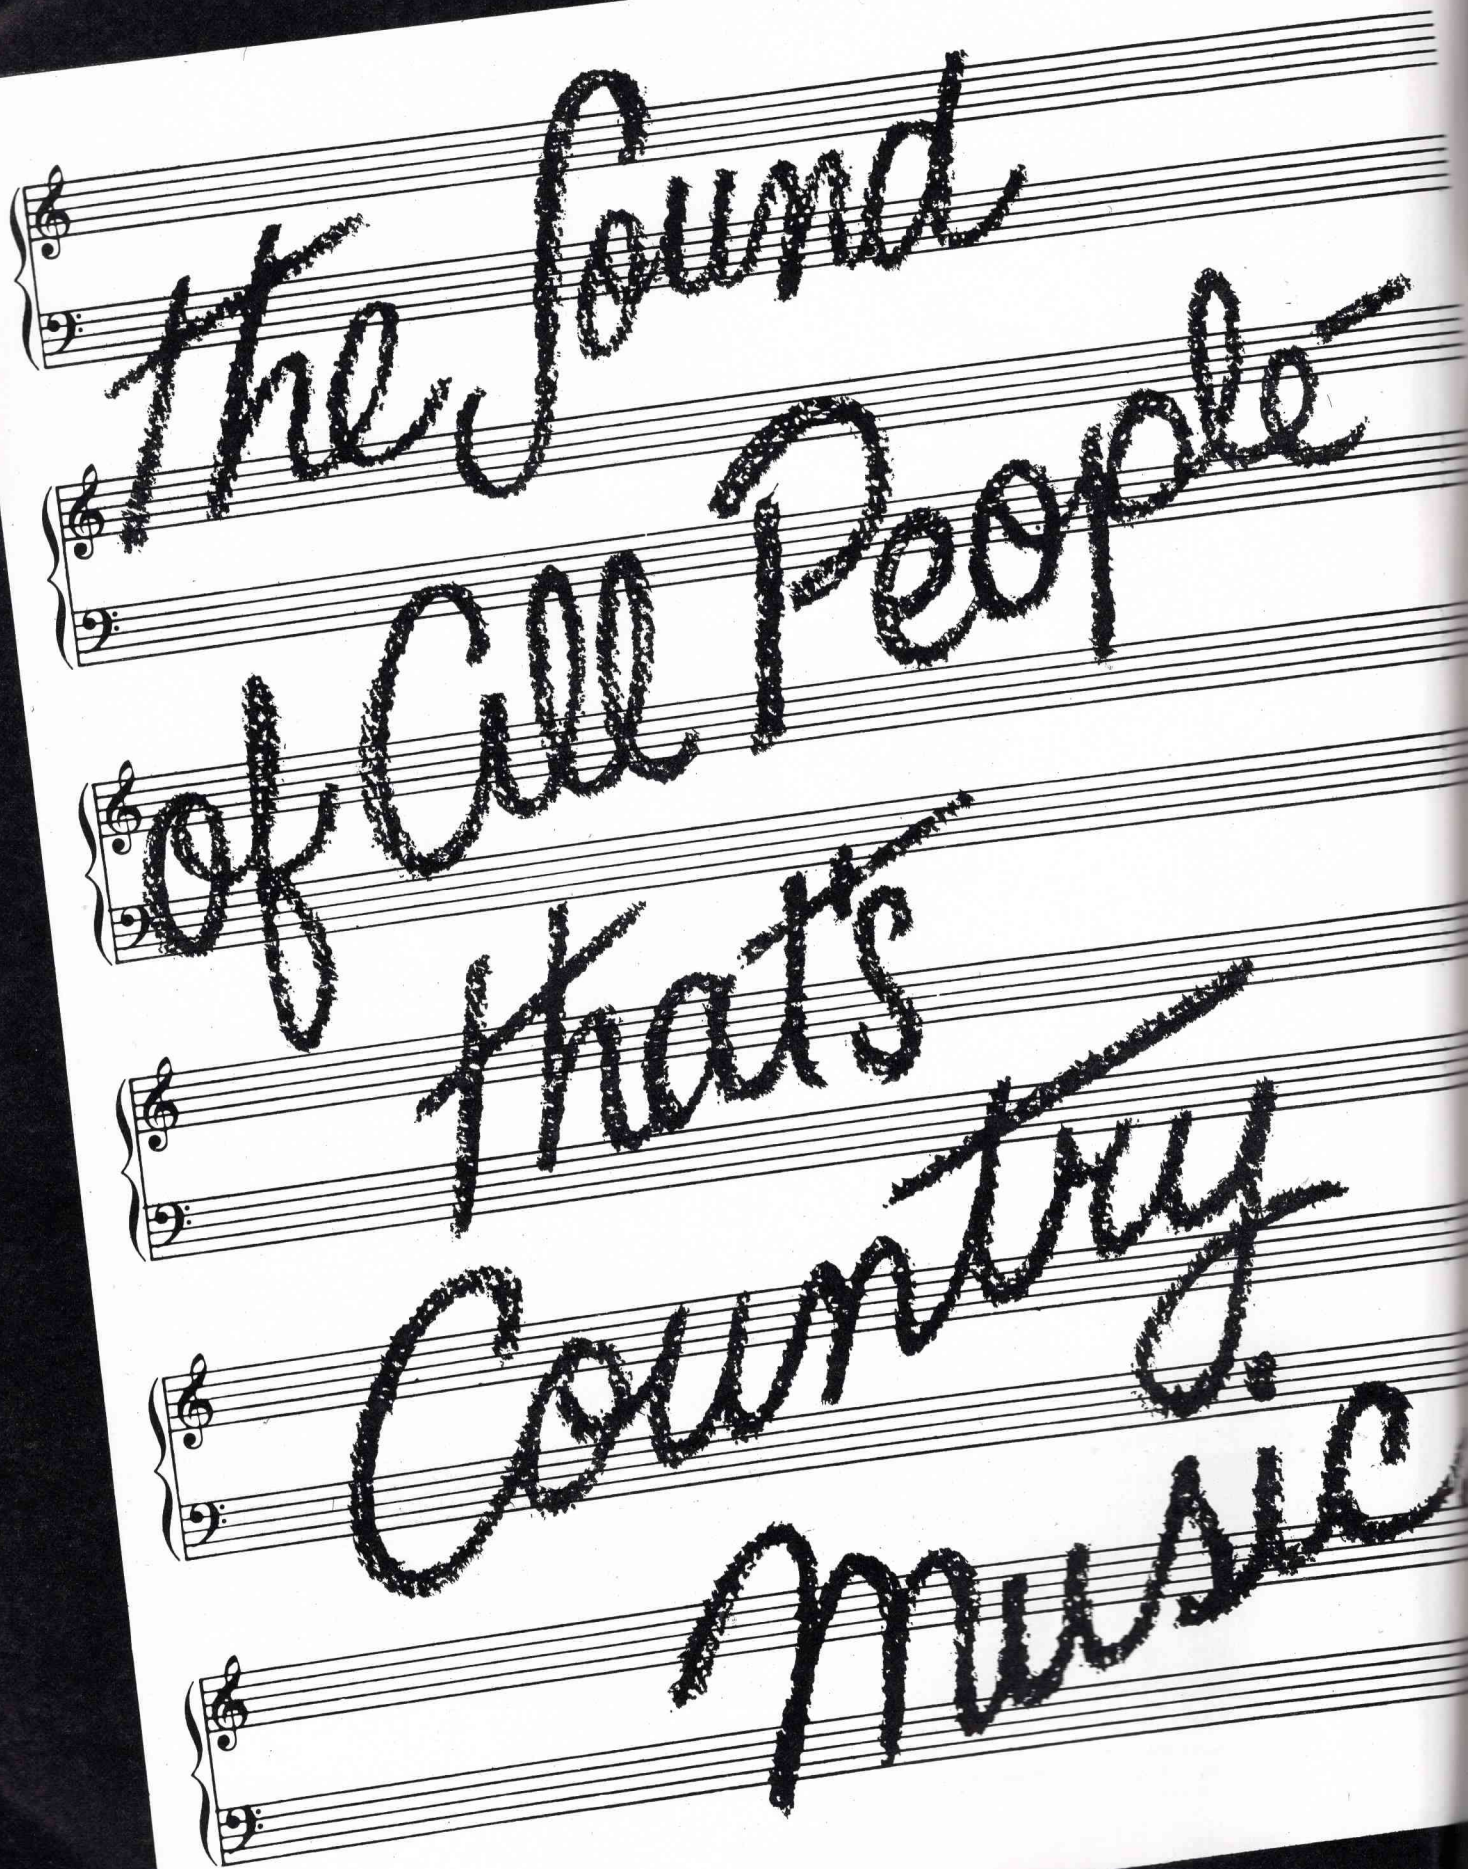 the Sound
of All People-
that's
Country
Music